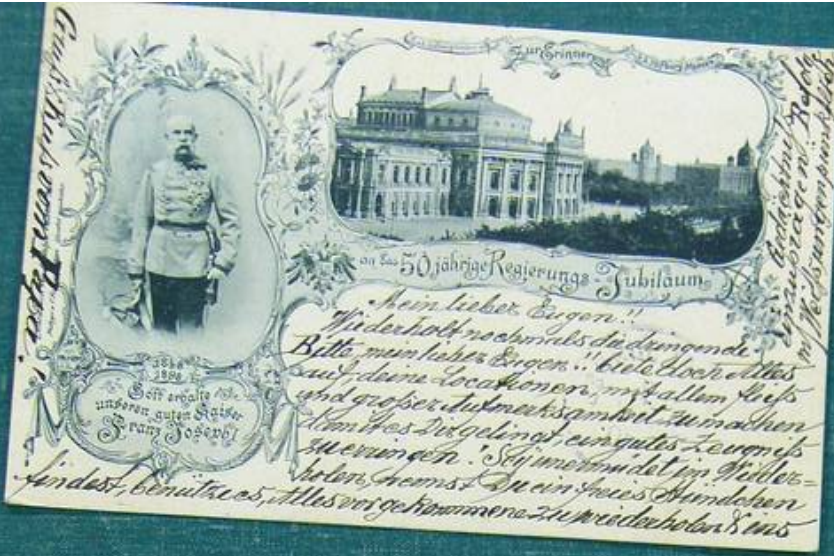 Zur Erinnerung
an das 50 jährige Regierungs-Jubiläum
1848
1898
Gott erhalte
unseren guten Kaiser
Franz Joseph!
Mein lieber Eugen!!
Wiederholt nochmals die dringende
Bitte, mein lieber Eugen!! biete doch Alles
auf, deine Locationen, mit allem Fleiß
und großer Aufmerksamkeit zu machen
damit es Dir gelingt, ein gutes Zeugniß
zu erringen! Sei unermüdet im Wieder-
holen, nemst Du ein freies Stündchen
findest, benütze es, Alles vorgekommene zu wiederholen & ins
Gedächtniß
einzuprägen! Befolge
m/ Weisungen pünktlich
Gruß & Kuß vom Papa!